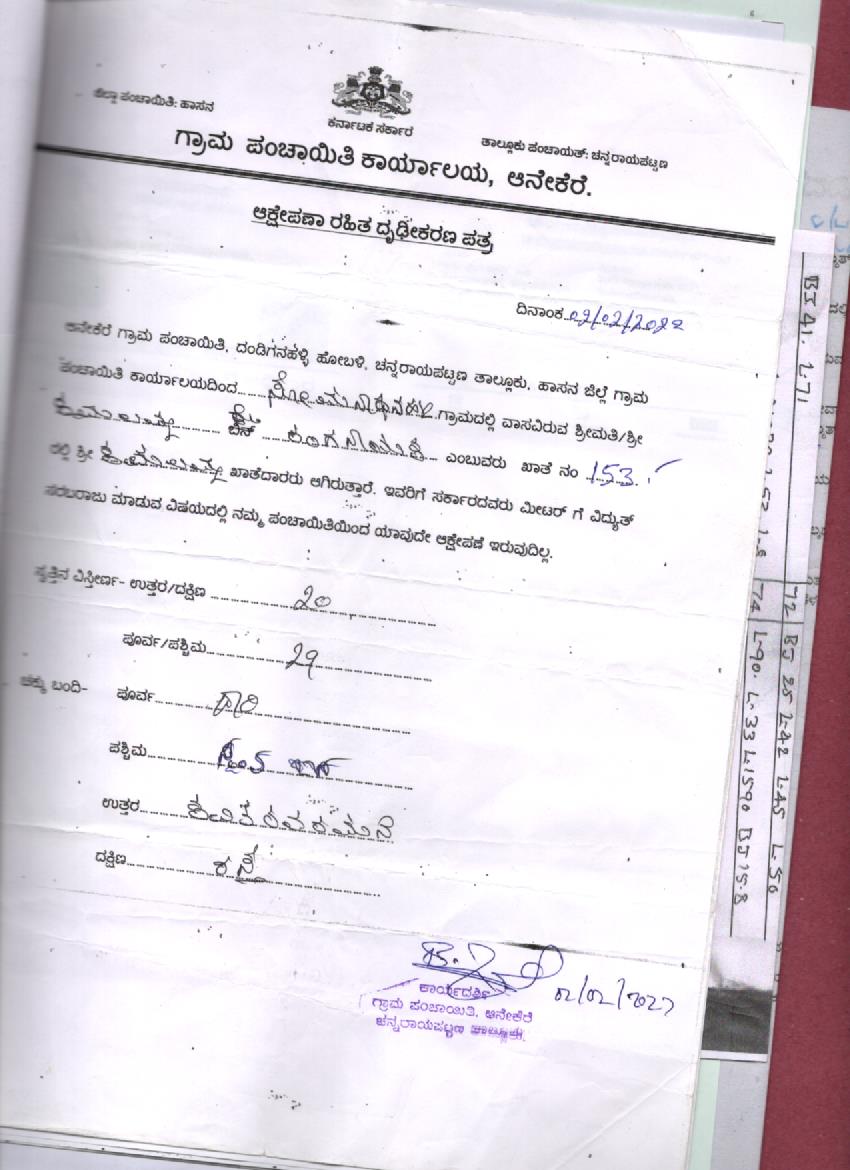 ಜಿಲ್ಲಾ ಪಂಚಾಯಿತಿ: ಹಾಸನ
ಕರ್ನಾಟಕ ಸರ್ಕಾರ
ತಾಲ್ಲೂಕು ಪಂಚಾಯತ್: ಚನ್ನರಾಯಪಟ್ಟಣ
ಗ್ರಾಮ ಪಂಚಾಯಿತಿ ಕಾರ್ಯಾಲಯ, ಆನೇಕೆರೆ.
ಆಕ್ಷೇಪಣಾ ರಹಿತ ದೃಢೀಕರಣ ಪತ್ರ
ದಿನಾಂಕ 02/02/2022
ಆನೇಕೆರೆ ಗ್ರಾಮ ಪಂಚಾಯಿತಿ, ದಂಡಿಗನಹಳ್ಳಿ ಹೋಬಳಿ, ಚನ್ನರಾಯಪಟ್ಟಣ ತಾಲ್ಲೂಕು, ಹಾಸನ ಜಿಲ್ಲೆ ಗ್ರಾಮ
ಪಂಚಾಯಿತಿ ಕಾರ್ಯಾಲಯದಿಂದ ಗ್ರಾಮದಲ್ಲಿ ವಾಸವಿರುವ ಶ್ರೀಮತಿ/ಶ್ರೀ
ಬಿನ್ ರಂಗನಾಯಕ ಎಂಬುವರು ಖಾತೆ ನಂ 153
ರಲ್ಲಿ ಶ್ರೀ ಖಾತೆದಾರರು ಆಗಿರುತ್ತಾರೆ. ಇವರಿಗೆ ಸರ್ಕಾರದವರು ಮೀಟರ್ ಗೆ ವಿದ್ಯುತ್
ಸರಬರಾಜು ಮಾಡುವ ವಿಷಯದಲ್ಲಿ ನಮ್ಮ ಪಂಚಾಯಿತಿಯಿಂದ ಯಾವುದೇ ಆಕ್ಷೇಪಣೆ ಇರುವುದಿಲ್ಲ.
ಸ್ವತ್ತಿನ ವಿಸ್ತೀರ್ಣ- ಉತ್ತರ/ದಕ್ಷಿಣ 20
ಪೂರ್ವ/ಪಶ್ಚಿಮ 29
ಚಕ್ಕು ಬಂದಿ- ಪೂರ್ವ ದಾರಿ
ಪಶ್ಚಿಮ
ಉತ್ತರ
ದಕ್ಷಿಣ ರಸ್ತೆ
02/02/2022
ಕಾರ್ಯದರ್ಶಿ
ಗ್ರಾಮ ಪಂಚಾಯಿತಿ, ಆನೇಕೆರೆ
ಚನ್ನರಾಯಪಟ್ಟಣ ತಾಲ್ಲೂಕು.
BJ 41. L71
72 BJ 25 L42 L45 L56
74 L90. L33 L1590 BJ 15.8